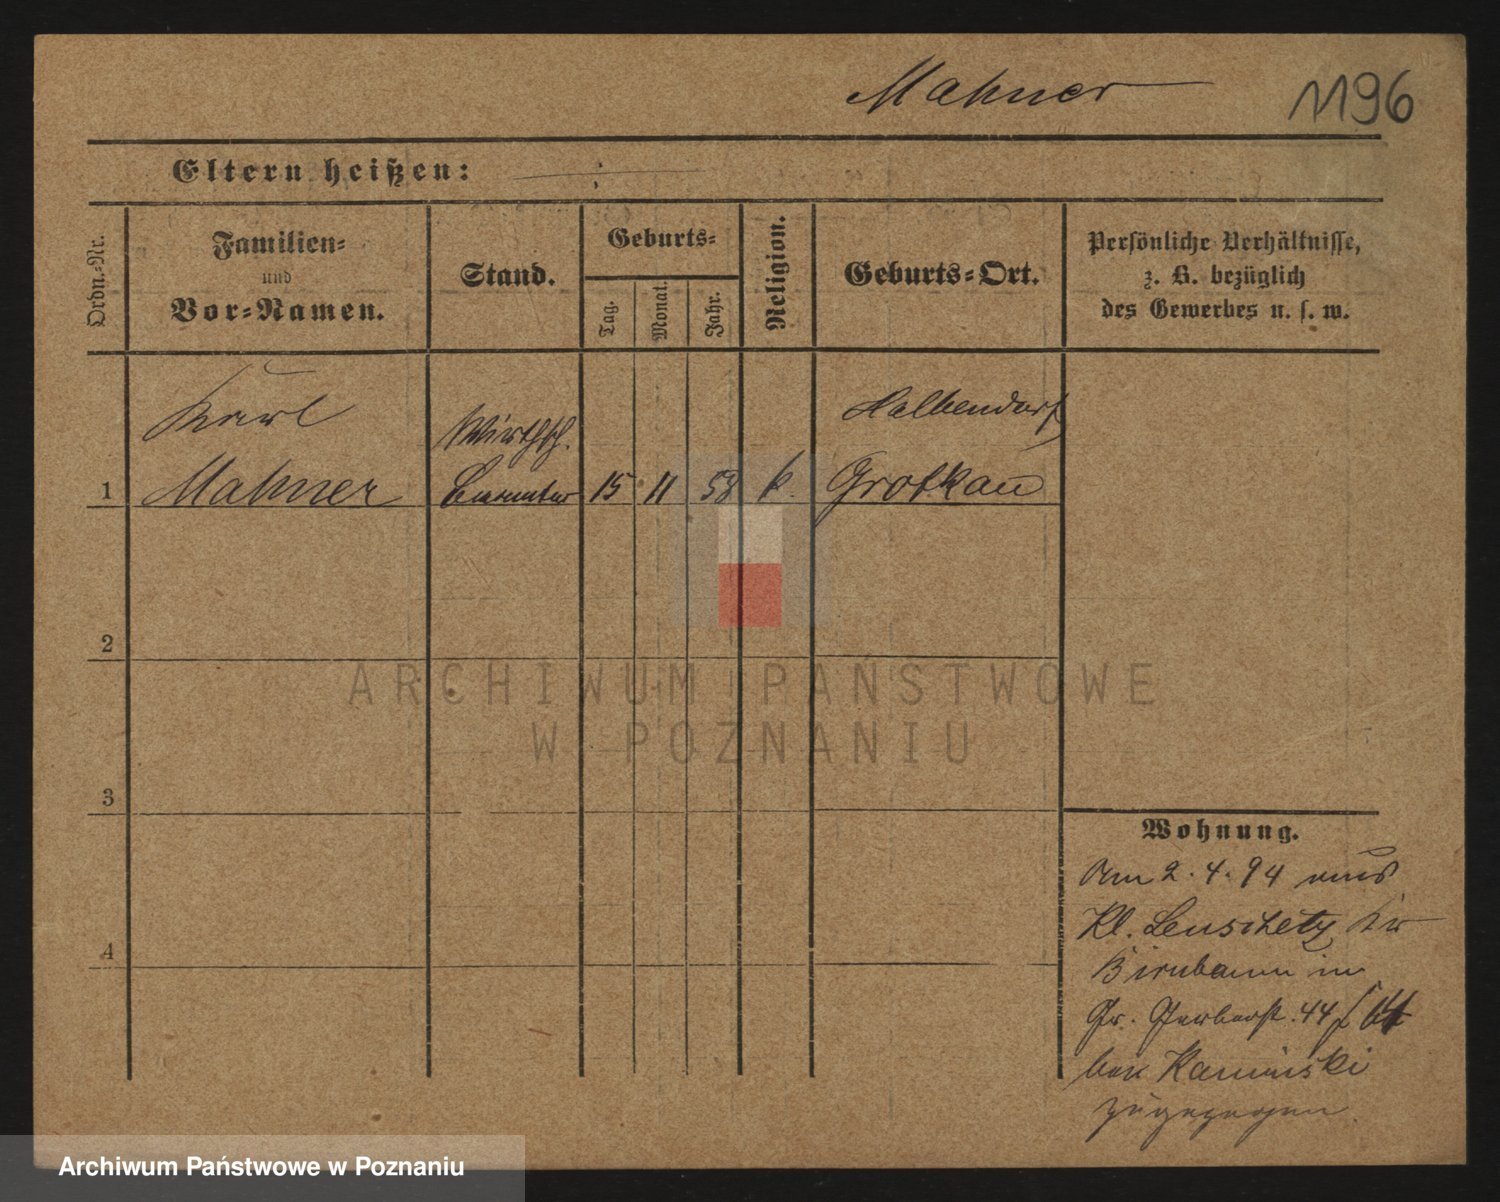 Mahner
1196
Eltern heißen:
Ordn.-Nr.
Familien-
und
Vor-Namen.
Stand.
Geburts-
Tag.
Monat.
Jahr.
Religion.
Geburts-Ort.
Persönliche Verhältnisse,
z. B. bezüglich
des Gewerbes u. s. w.
Karl
Mahner
Wirthsch.
Beamter
1
15
11
58
k.
Halbendorf
Grotkau
2
3
4
Wohnung.
Am 2. 4. 94 aus
Kl. Leuschetz Kr
Birnbaum in
Gr. Gerberst. 44
bei Kaminski
zugezogen.
ARCHIWUM PAŃSTWOWE
W POZNANIU
Archiwum Państwowe w Poznaniu